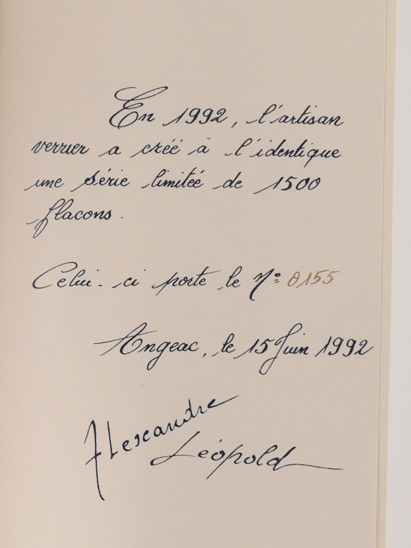 En 1992, l'artisan
verrier a créé à l'identique
une série limitée de 1500
flacons.
Celui-ci porte le N° 0155
Angeac, le 15 Juin 1992
Alexandre
Léopold